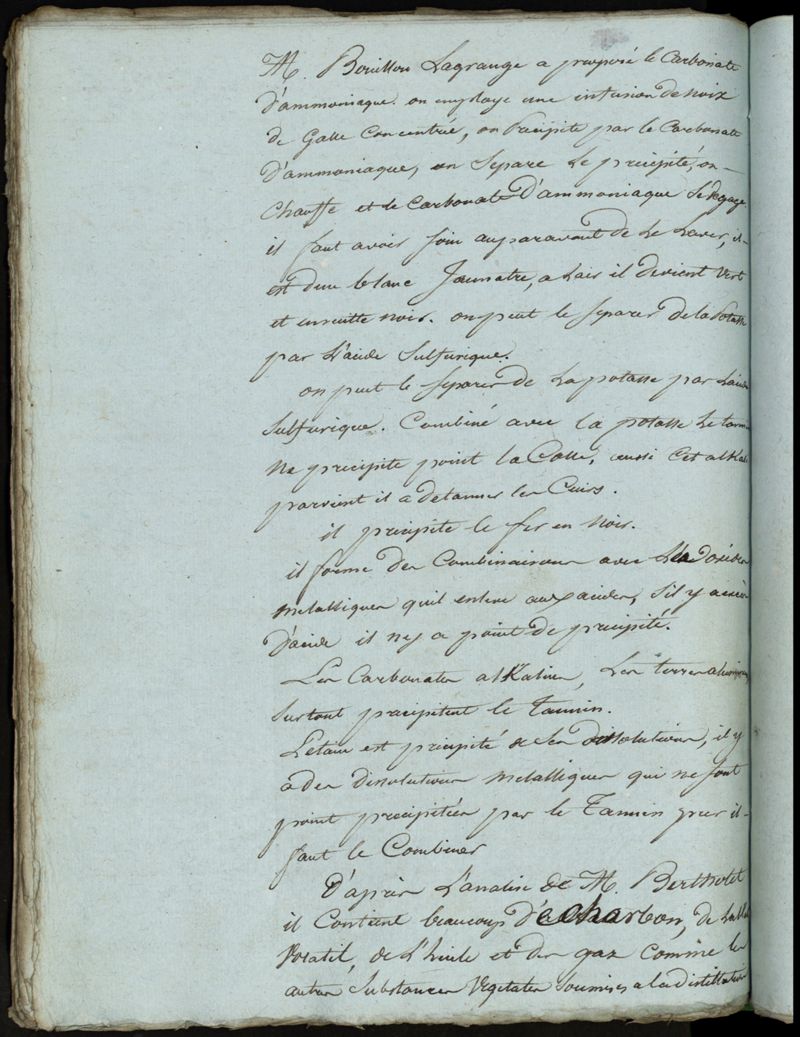 M. Bouillon Lagrange a proposé le Carbonate
D'ammoniaque. on employe une infusion de noix
de Galle Concentrée, on precipite par le Carbonate
D'ammoniaque, on Separe le precipité, on
Chauffe et le Carbonate D'ammoniaque Se degage
il faut avoir soin auparavant de Le Laver, il
est d'un blanc Jaunatre, a Lair il devient vert
et ensuitte noir. on peut le Separer de la Potasse
par L'acide Sulfurique.
on peut le Separer de La potasse par Lacide
Sulfurique. Combiné avec la potasse Le tannin
Ne precipite point la Colle, aussi Cet alKali
parvient il a detanner les Cuirs.
il precipite le fer en Noir.
il forme des Combinaisons avec Les oxides
metalliques quil enleve aux acides, S'il y a excès
D'acide il n'y a point de precipité.
Les Carbonates alKalins, Les terres
Surtout precipitent le Tannin.
L'etain est precipité de Ses dissolutions, il y
a des dissolutions metalliques qui ne sont
point precipitées par le Tannin pur il
faut le Combiner
D'après L'analise de M. Bertholet
il Contient beaucoup de charbon, de
Volatil, de L'huile et des gaz Comme les
autres Substances Vegetales Soumises a la distillation